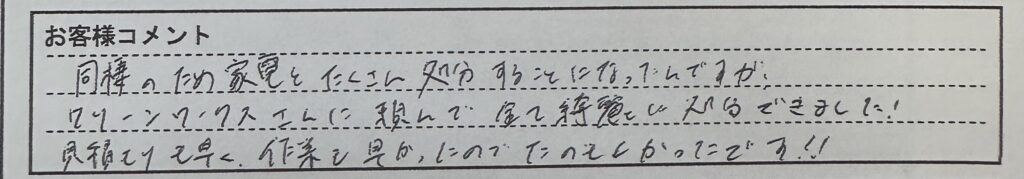 お客様コメント
同棲のため家電をたくさん処分することになったんですが、
クリーンワークスさんに頼んで全て綺麗に処分できました!
見積もりも早く、作業も早かったのでたのもしかったです!!